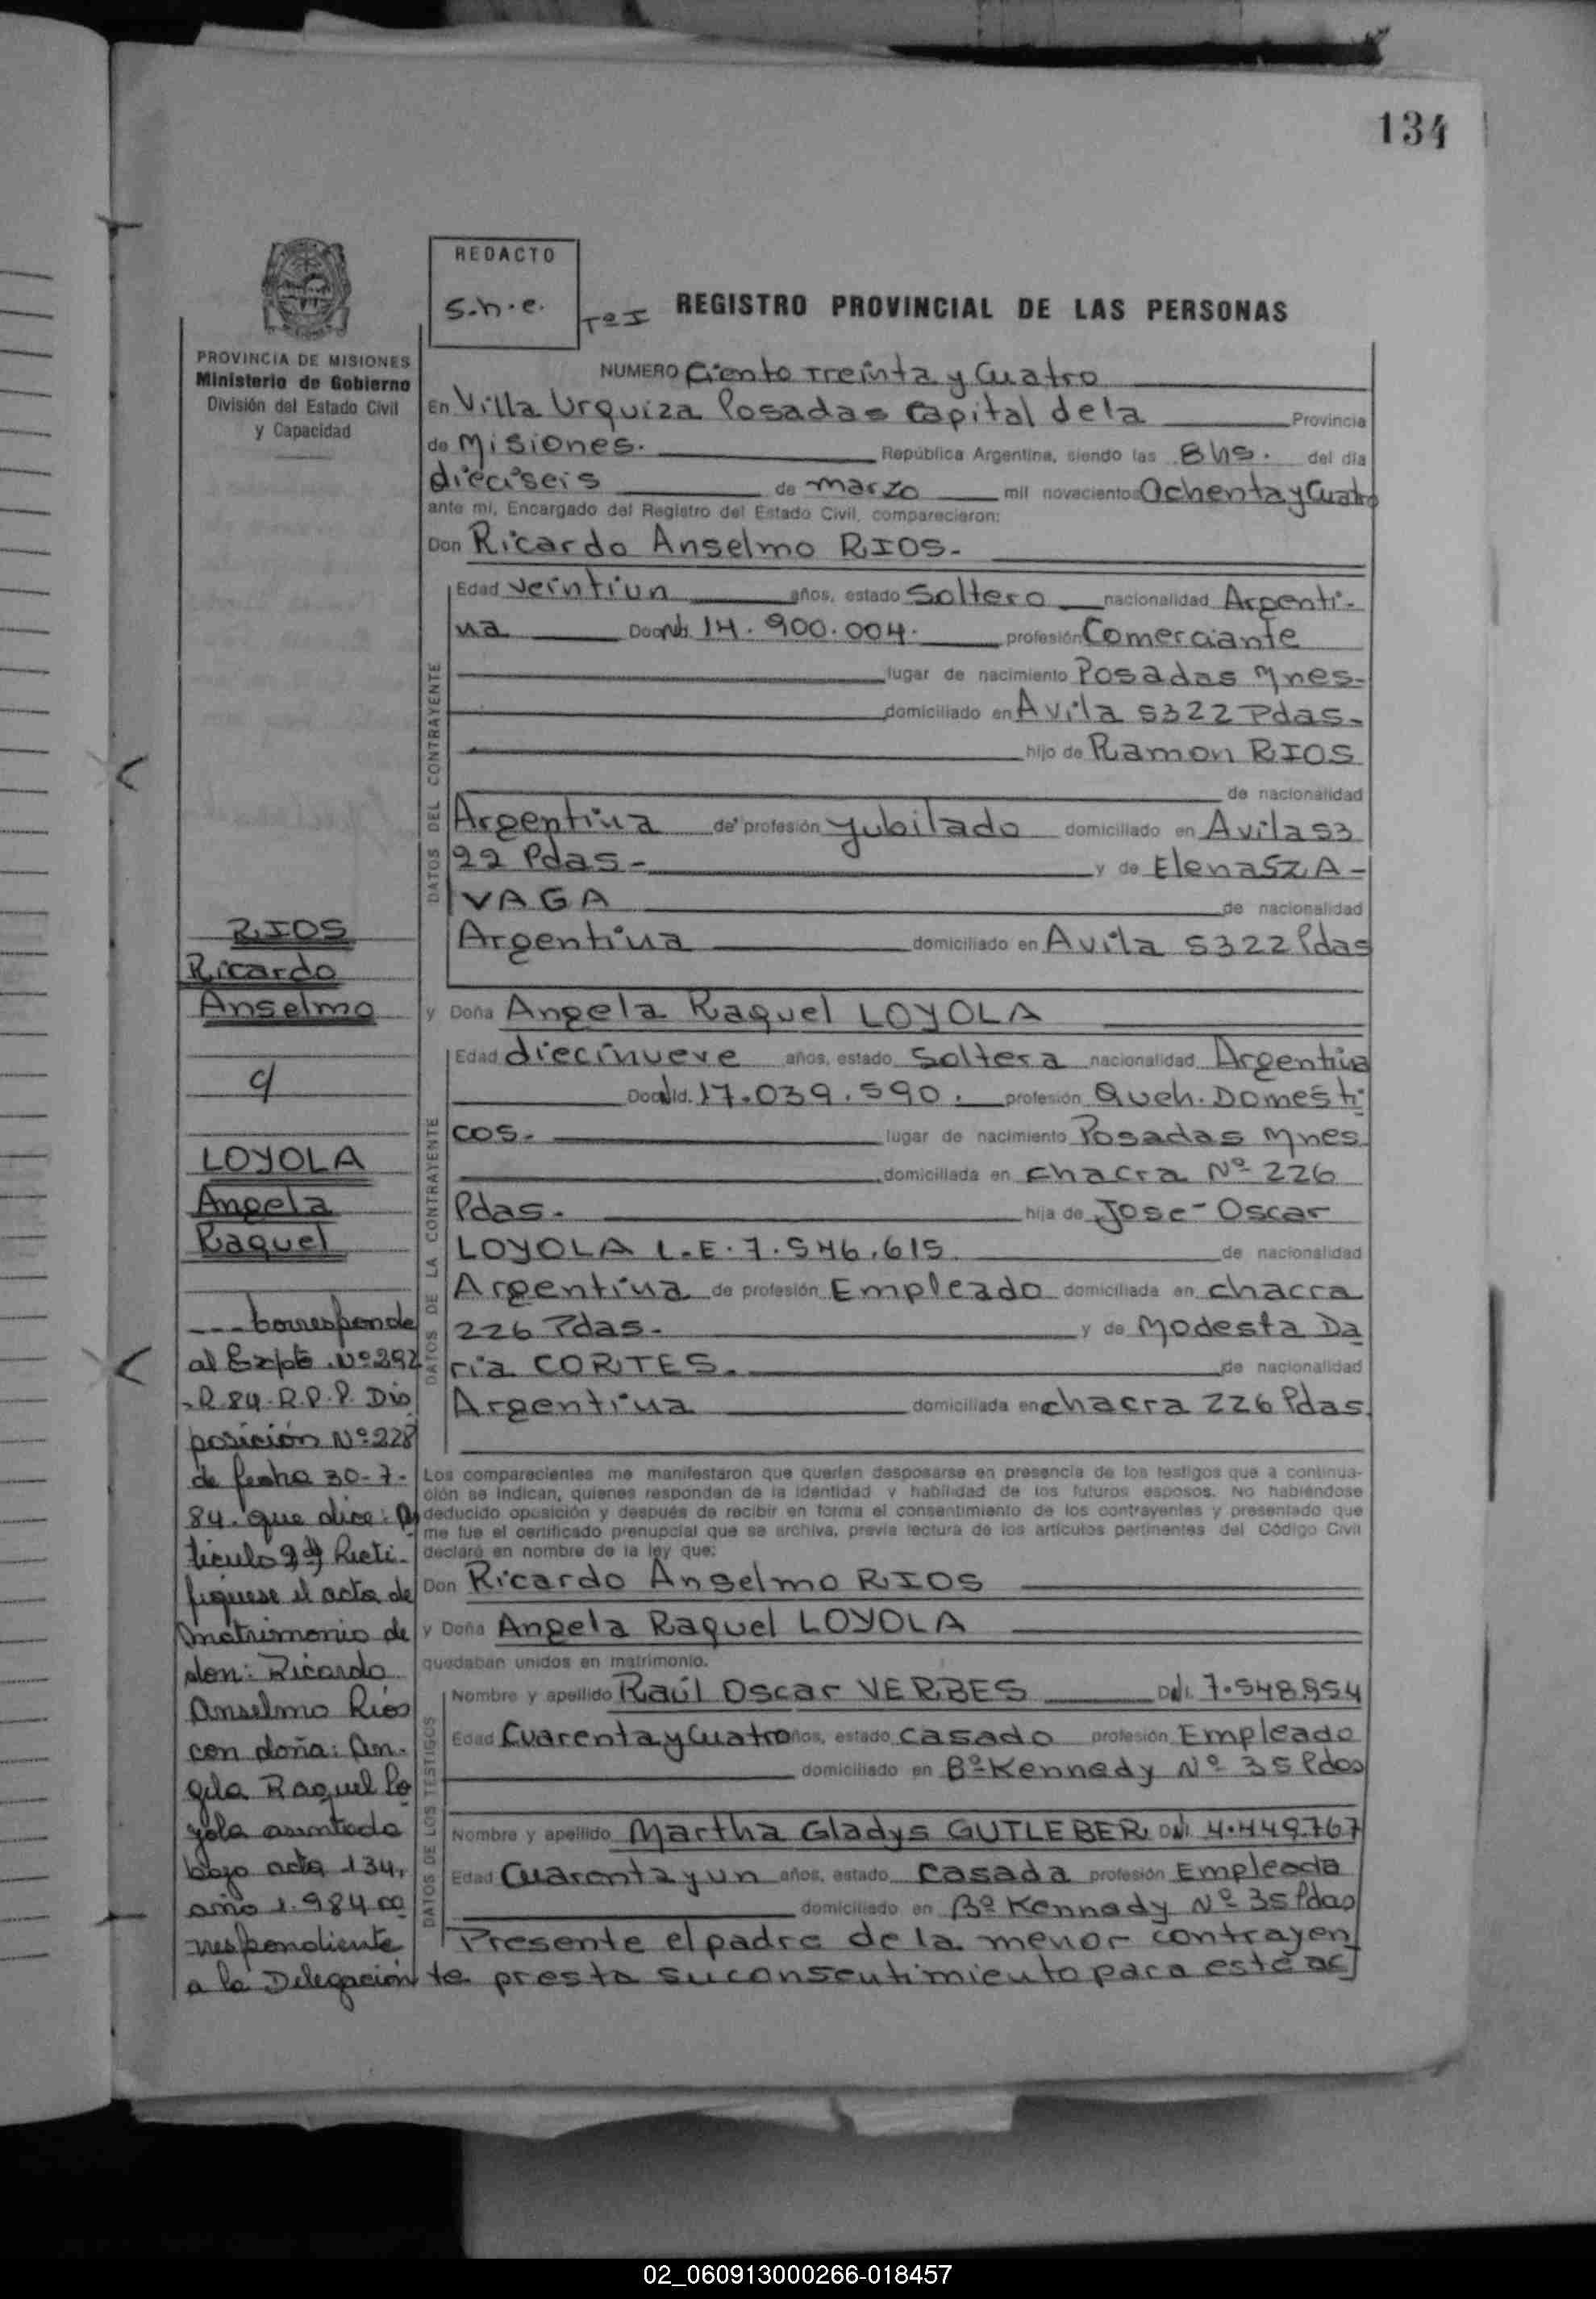 134
REDACTO
S.h.e.
Tº I
REGISTRO PROVINCIAL DE LAS PERSONAS
PROVINCIA DE MISIONES
Ministerio de Gobierno
División del Estado Civil
y Capacidad
NUMERO Ciento Treinta y Cuatro
En Villa Urquiza Posadas Capital de la Provincia
de Misiones. República Argentina, siendo las 8 hs. del día
dieciseis de marzo mil novecientos Ochenta y Cuatro
ante mi, Encargado del Registro del Estado Civil, comparecieron:
Don Ricardo Anselmo RIOS.
DATOS DEL CONTRAYENTE
Edad veintiun años, estado Soltero nacionalidad Argenti-
na 14.900.004. profesión Comerciante
lugar de nacimiento Posadas Mnes-
domiciliado en Avila 5322 Pdas.
hijo de Ramon RIOS
de nacionalidad
Argentina de profesión Yubilado domiciliado en Avila 53
22 Pdas- y de Elena SZA-
VAGA de nacionalidad
Argentina domiciliado en Avila 5322 Pdas
y Doña Angela Raquel LOYOLA
DATOS DE LA CONTRAYENTE
Edad diecinueve años, estado Soltera nacionalidad Argentina
17.039.590. profesión Queh. Domesti
cos. lugar de nacimiento Posadas Mnes
domiciliada en chacra Nº 226
Pdas. hija de Jose Oscar
LOYOLA L.E. 7.546.615 de nacionalidad
Argentina de profesión Empleado domiciliada en chacra
226 Pdas. y de Modesta Da
ria CORTES. de nacionalidad
Argentina domiciliada en chacra 226 Pdas.
Los comparecientes me manifestaron que querían desposarse en presencia de los testigos que a continua-
ción se indican, quienes responden de la identidad y habilidad de los futuros esposos. No habiéndose
deducido oposición y después de recibir en forma el consentimiento de los contrayentes y presentado que
me fue el certificado prenupcial que se archiva, previa lectura de los artículos pertinentes del Código Civil
declaré en nombre de la ley que:
Don Ricardo Anselmo RIOS
y Doña Angela Raquel LOYOLA
quedaban unidos en matrimonio.
DATOS DE LOS TESTIGOS
Nombre y apellido Raúl Oscar VERBES 7.548.954
Edad Cuarenta y Cuatro años, estado casado profesión Empleado
domiciliado en Bº Kennedy Nº 35 Pdas
Nombre y apellido Martha Gladys GUTLEBER 4.449.767
Edad Cuarenta y un años, estado Casada profesión Empleada
domiciliado en Bº Kennedy Nº 35 Pdas
Presente el padre de la menor contrayen
te presta su consentimiento para este ac
RIOS
Ricardo
Anselmo
c/
LOYOLA
Angela
Raquel
Corresponde
al Expte. Nº 292
-R 84-R.P.P. Dis
posición Nº 228
de fecha 30-7-
84. que dice: Ar
ticulo 2º) Recti-
fiquese el acta de
matrimonio de
don: Ricardo
Anselmo Rios
con doña: An-
gela Raquel Lo
yola asentada
bajo acta 134,
año 1.984 co
rrespondiente
a la Delegación
02_060913000266-018457